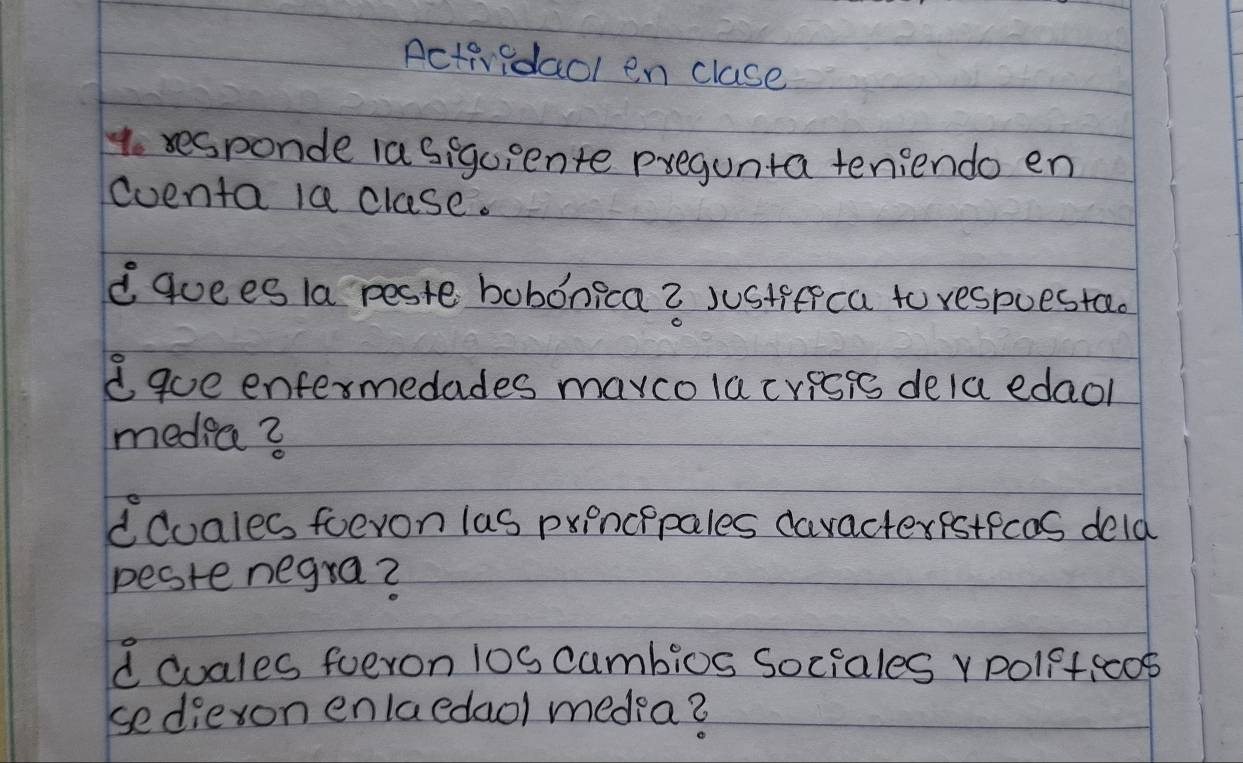 Actividad en clase
1. responde la siguiente pregunta teniendo en
cuenta la clase.
¿ que es la peste bubónica? Justifica tu respuesta.
¿ que enfermedades marco la crisis de la edad
media?
¿ cuales fueron las principales caracteristicas de la
peste negra?
¿ cuales fueron los cambios sociales y politicos
se dieron en la edad media?